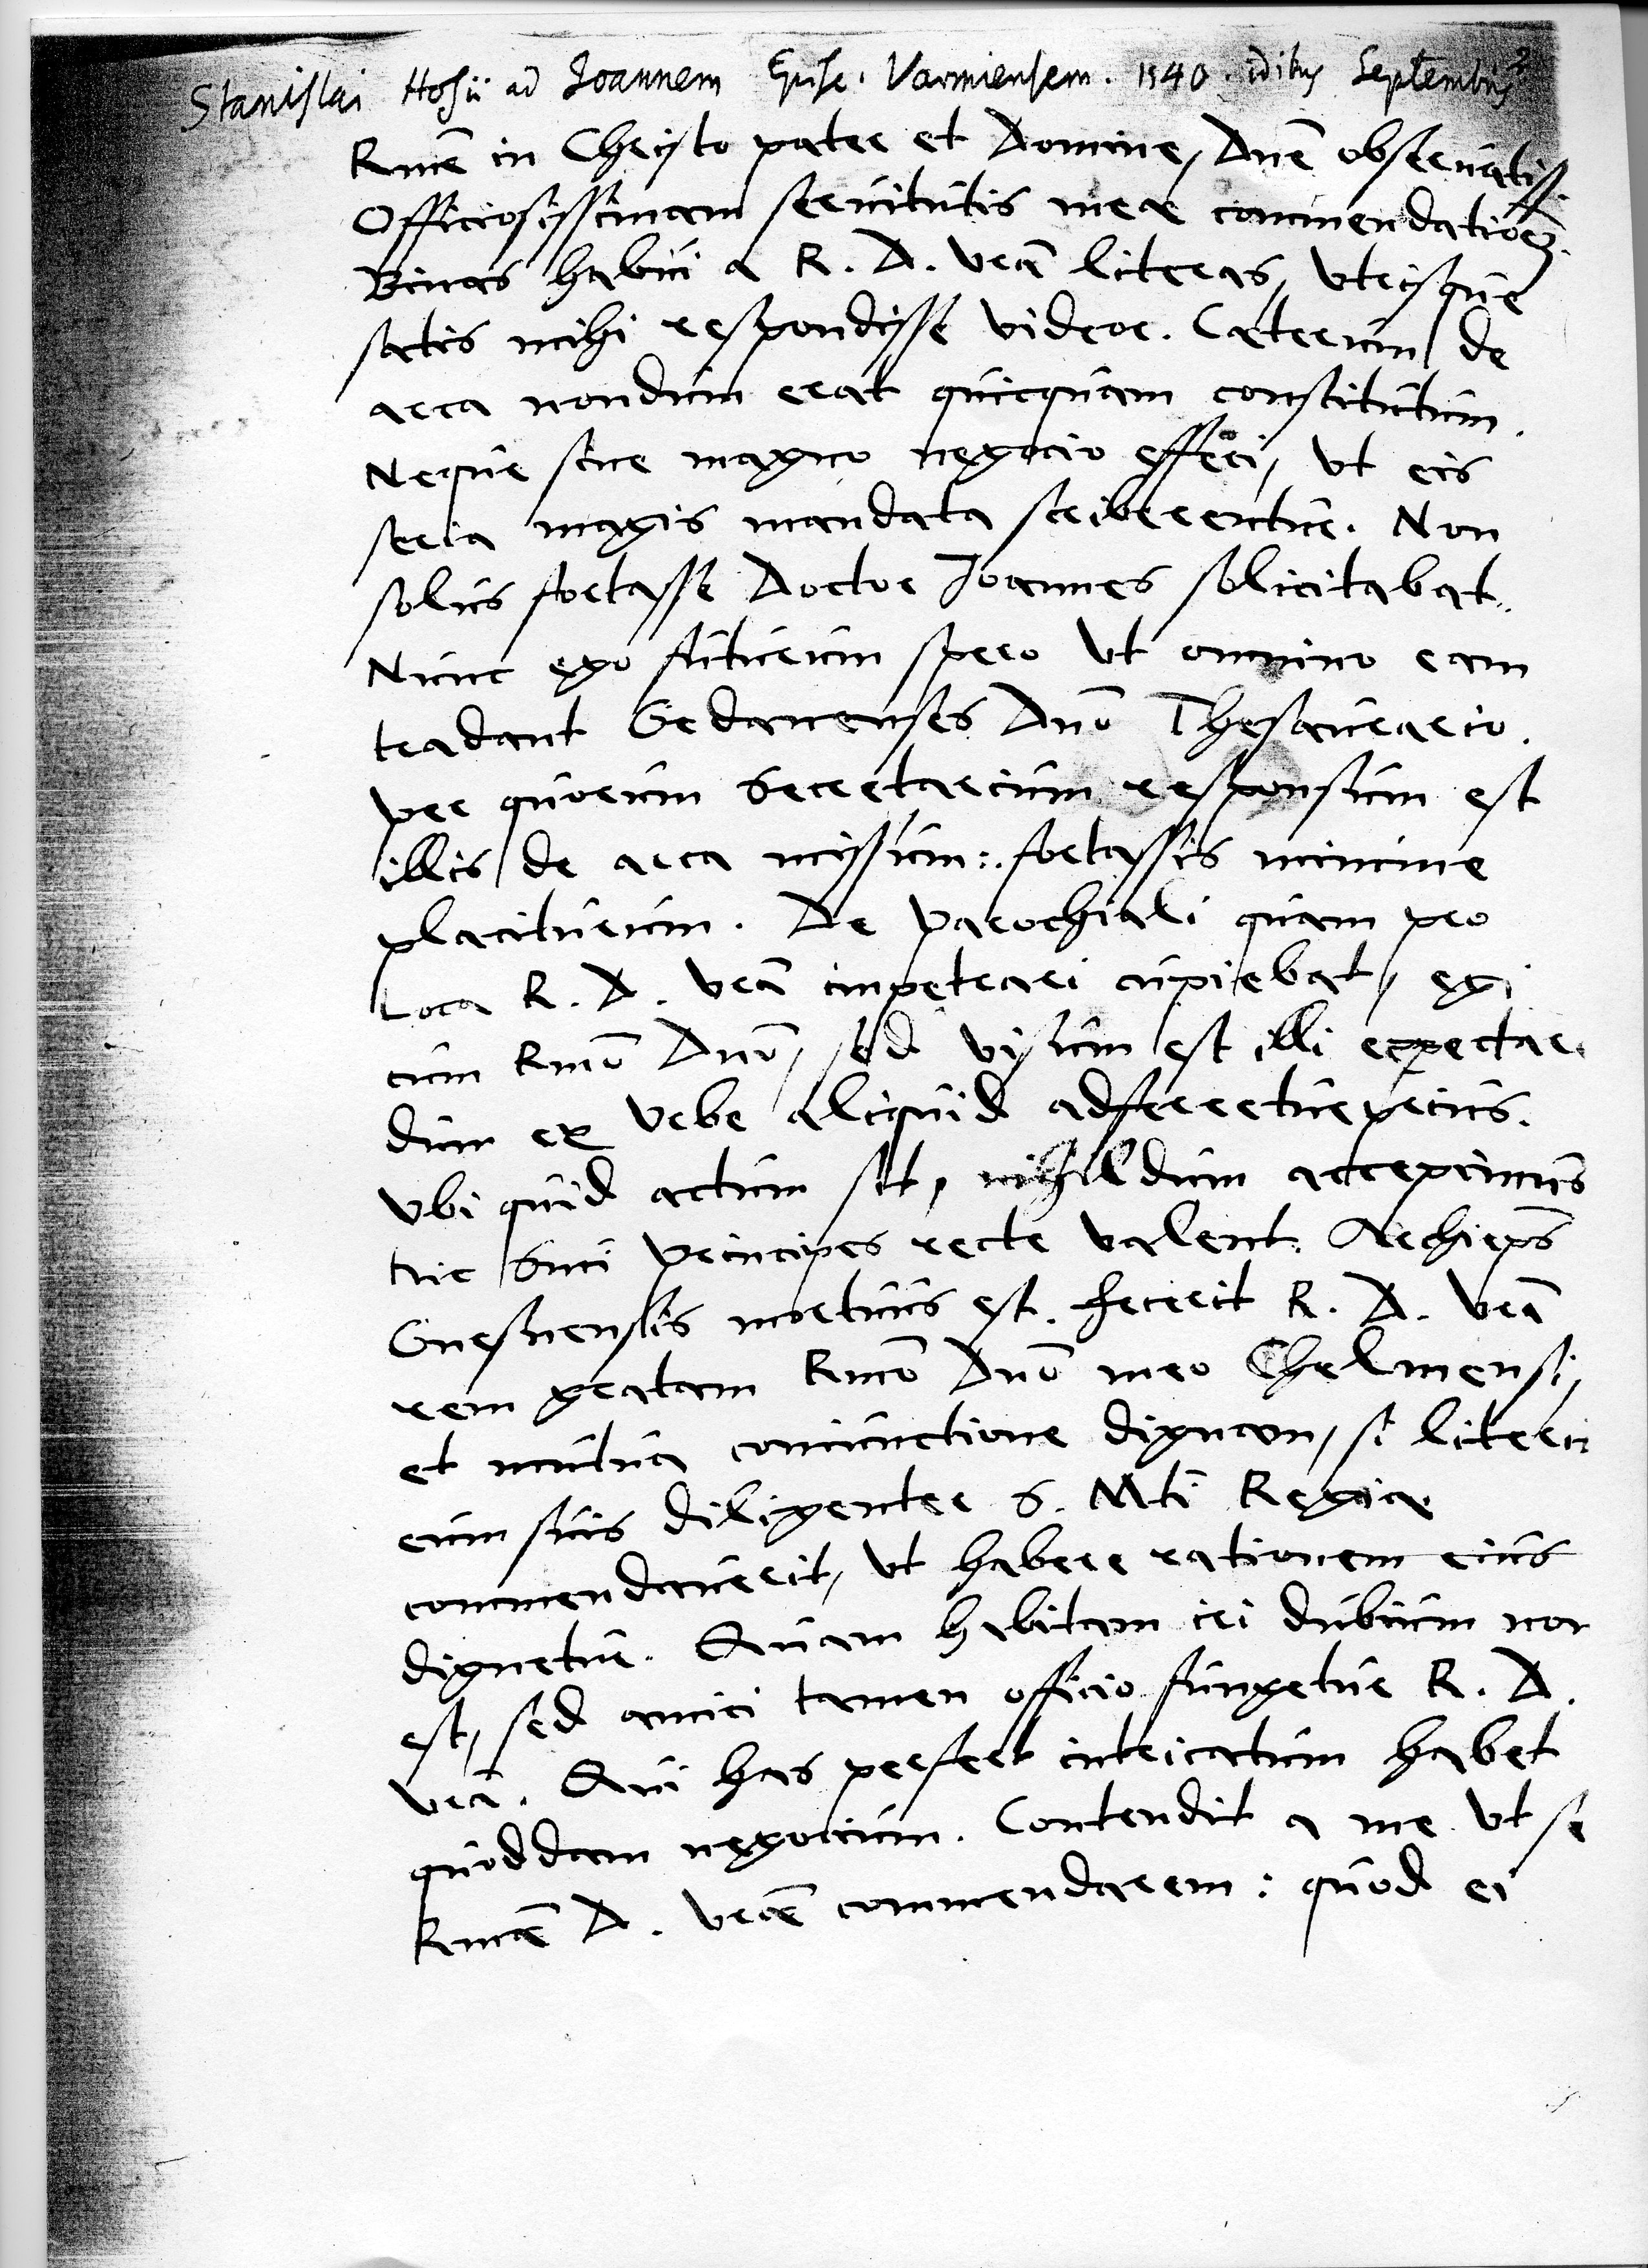 Stanislai Hosii ad Ioannem Epise. Varmiensem. 1540. idibus Septembris
Rme in Christo pater et Domine, Dne obseruatiss.
Officiosissimam seruitutis meae commendationem.
Binas habui a R. D. vra literas, vtrisque
satis mihi respondisse videor. Caeterum de
arca nondum erat quicquam constitutum.
Neque sine magno negocio effeci, vt eis
seria magis mandata scriberentur. Non
solus fortasse Doctor Joannes solicitabat.
Nunc ego futurum spero vt omnino eam
tradant Gedanenses Dno Thesaurario.
per quorum Secretarium responsum est
illis de arca missum: fortassis minime
placiturum. De parochiali quam pro
Loca R. D. vra impetrari cupiebat, egi
cum Rmo Dno, sed visum est illi expectan
dum ex vrbe aliquid adferretur prius.
Vbi quid actum sit, nihildum accepimus
Hic Sui principes recte valent. Archieps
Gnesnensis mortuus est. Fecerit R. D. vra
rem gratam Rmo Dno meo Chelmensi,
et mutua coniunctione dignam, si literis
eum suis diligenter S. Mti Regiae
commendauerit, vt habere rationem eius
dignetur. Quam habitam iri dubium non
est, sed amici tamen officio fungetur R. D.
vra. Qui has perfert intricatum habet
quoddam negocium. Contendit a me vt se
Rmae D. vrae commendarem: quod ei